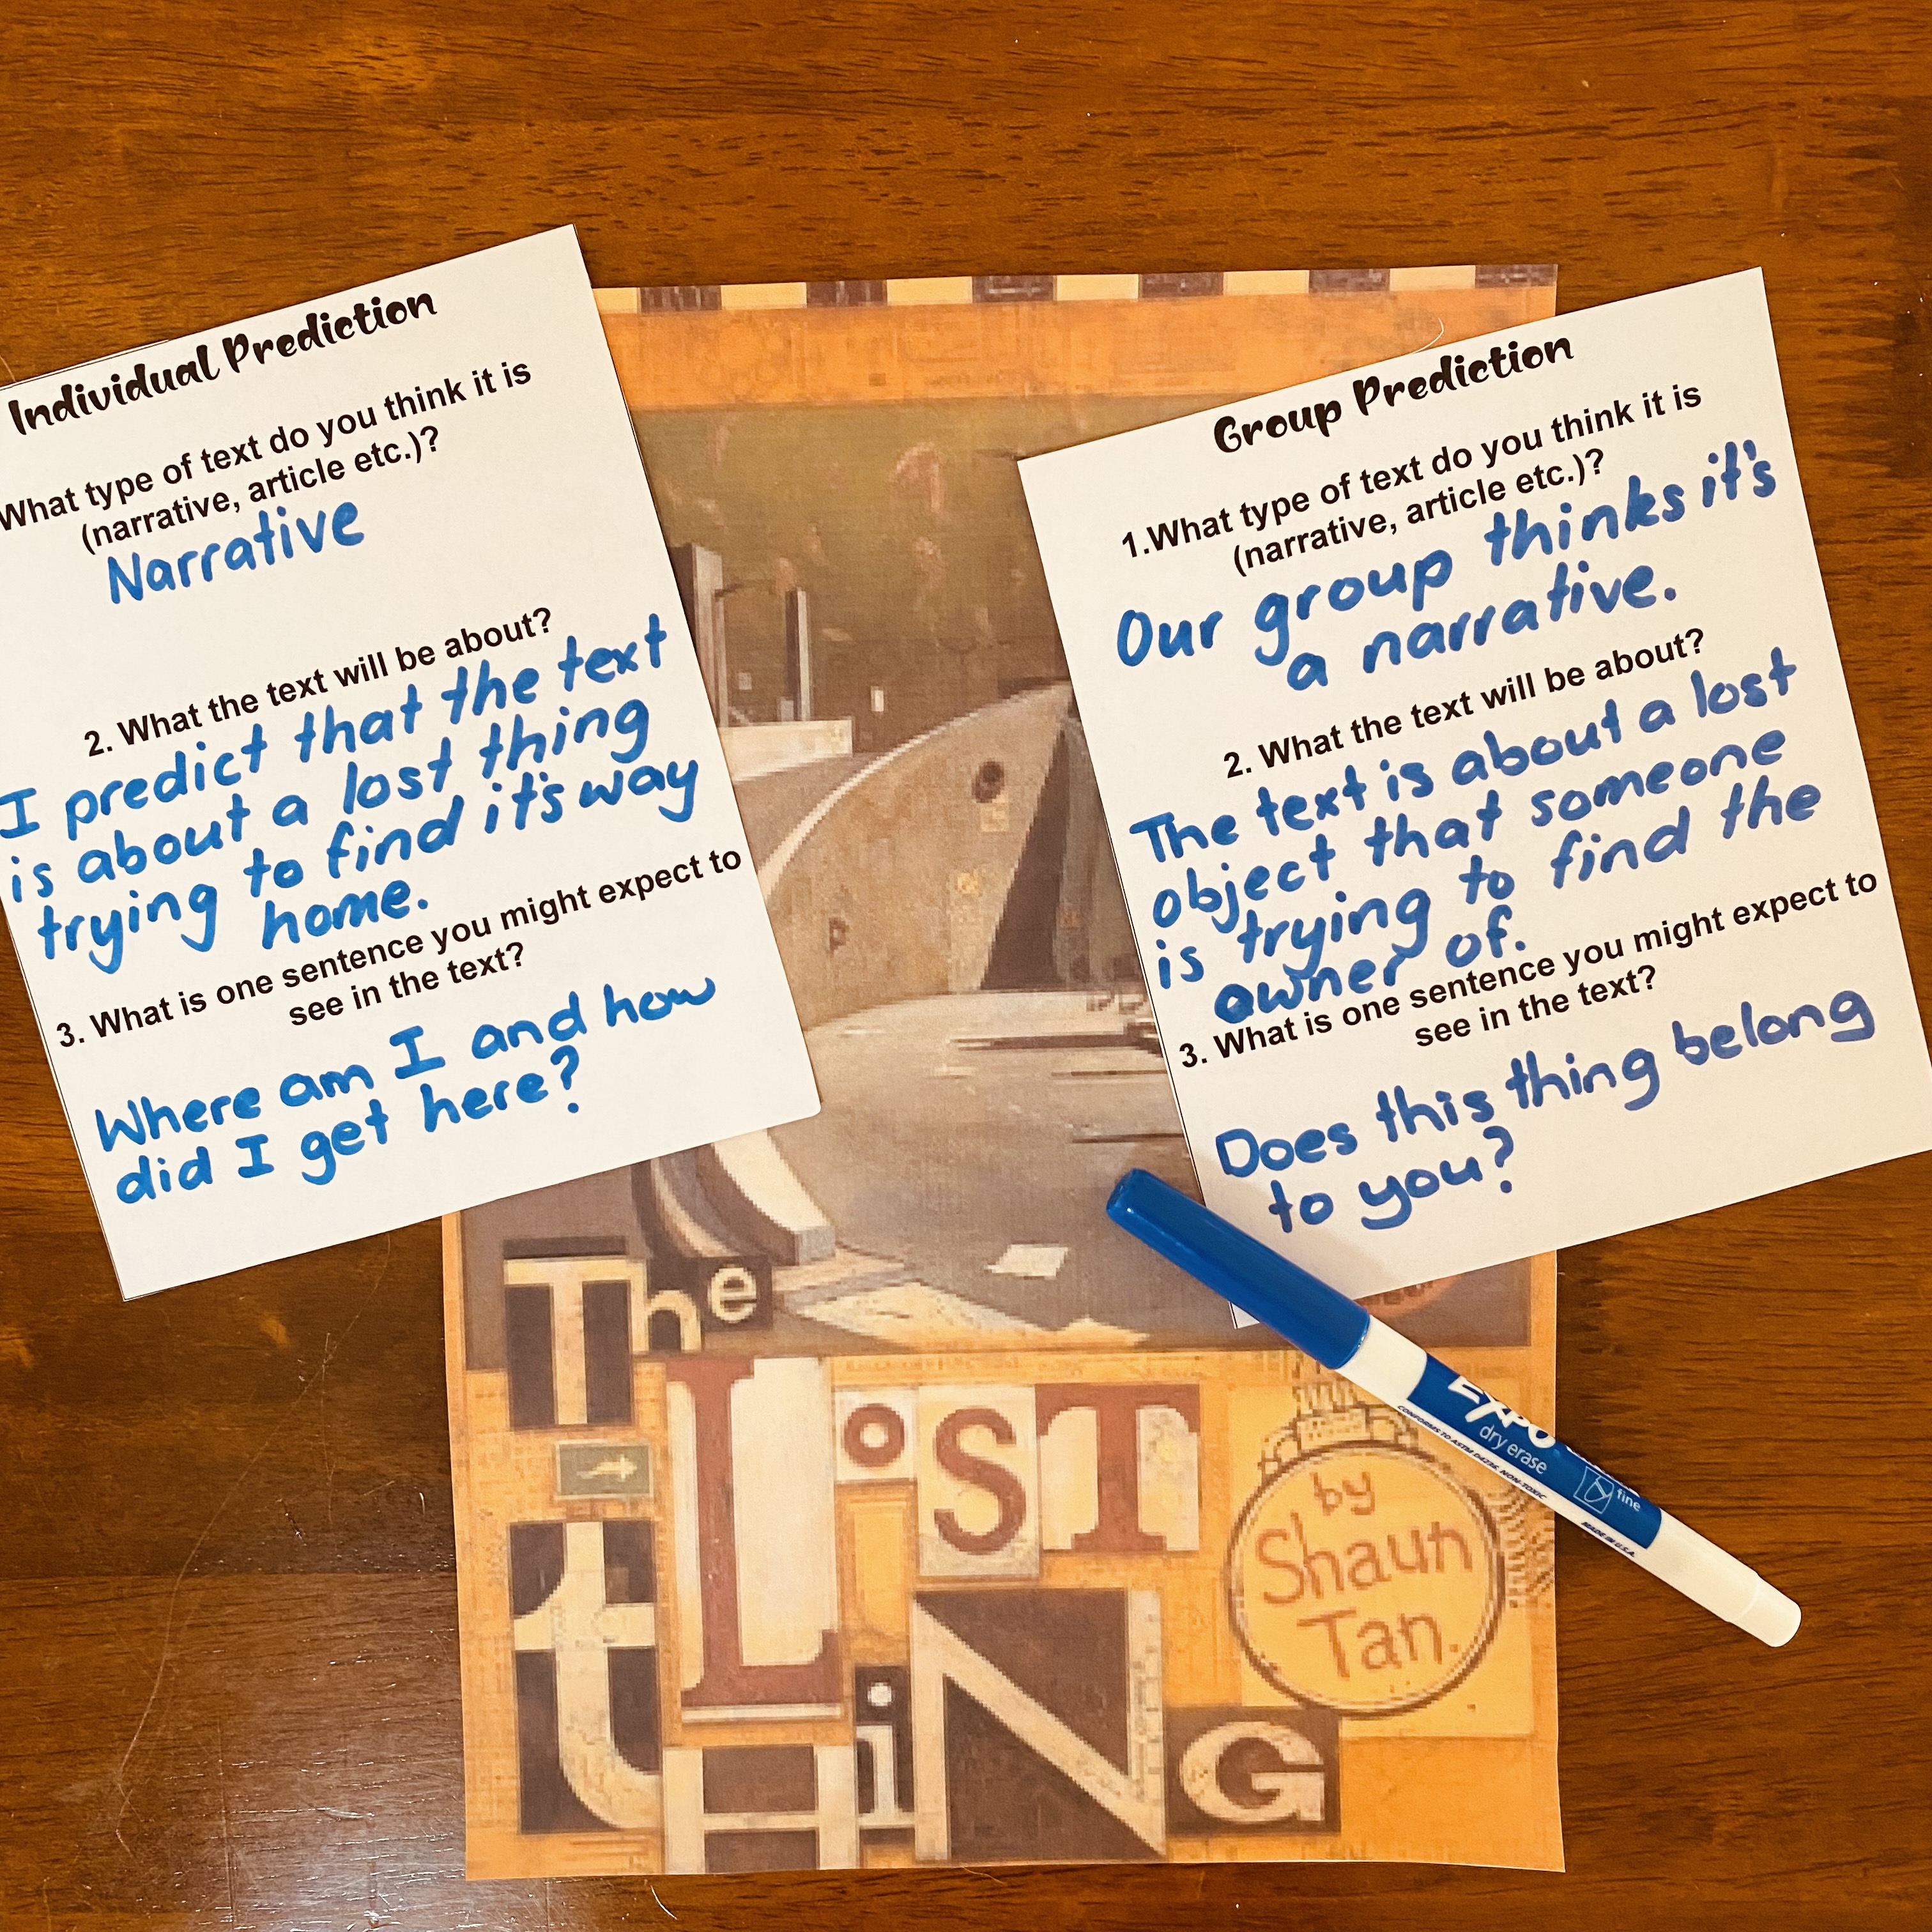 Individual Prediction
What type of text do you think it is
(narrative, article etc.)?
Narrative
2. What the text will be about?
I predict that the text
is about a lost thing
trying to find it's way
home.
3. What is one sentence you might expect to
see in the text?
Where am I and how
did I get here?
Group Prediction
1.What type of text do you think it is
(narrative, article etc.)?
Our group thinks it's
a narrative.
2. What the text will be about?
The text is about a lost
object that someone
is trying to find the
owner of.
3. What is one sentence you might expect to
see in the text?
Does this thing belong
to you?
The
LoST
tHiNG
by
Shaun
Tan.
EXPO
dry erase
fine
CONFORMS TO ASTM D4236. NON-TOXIC
MADE IN U.S.A.